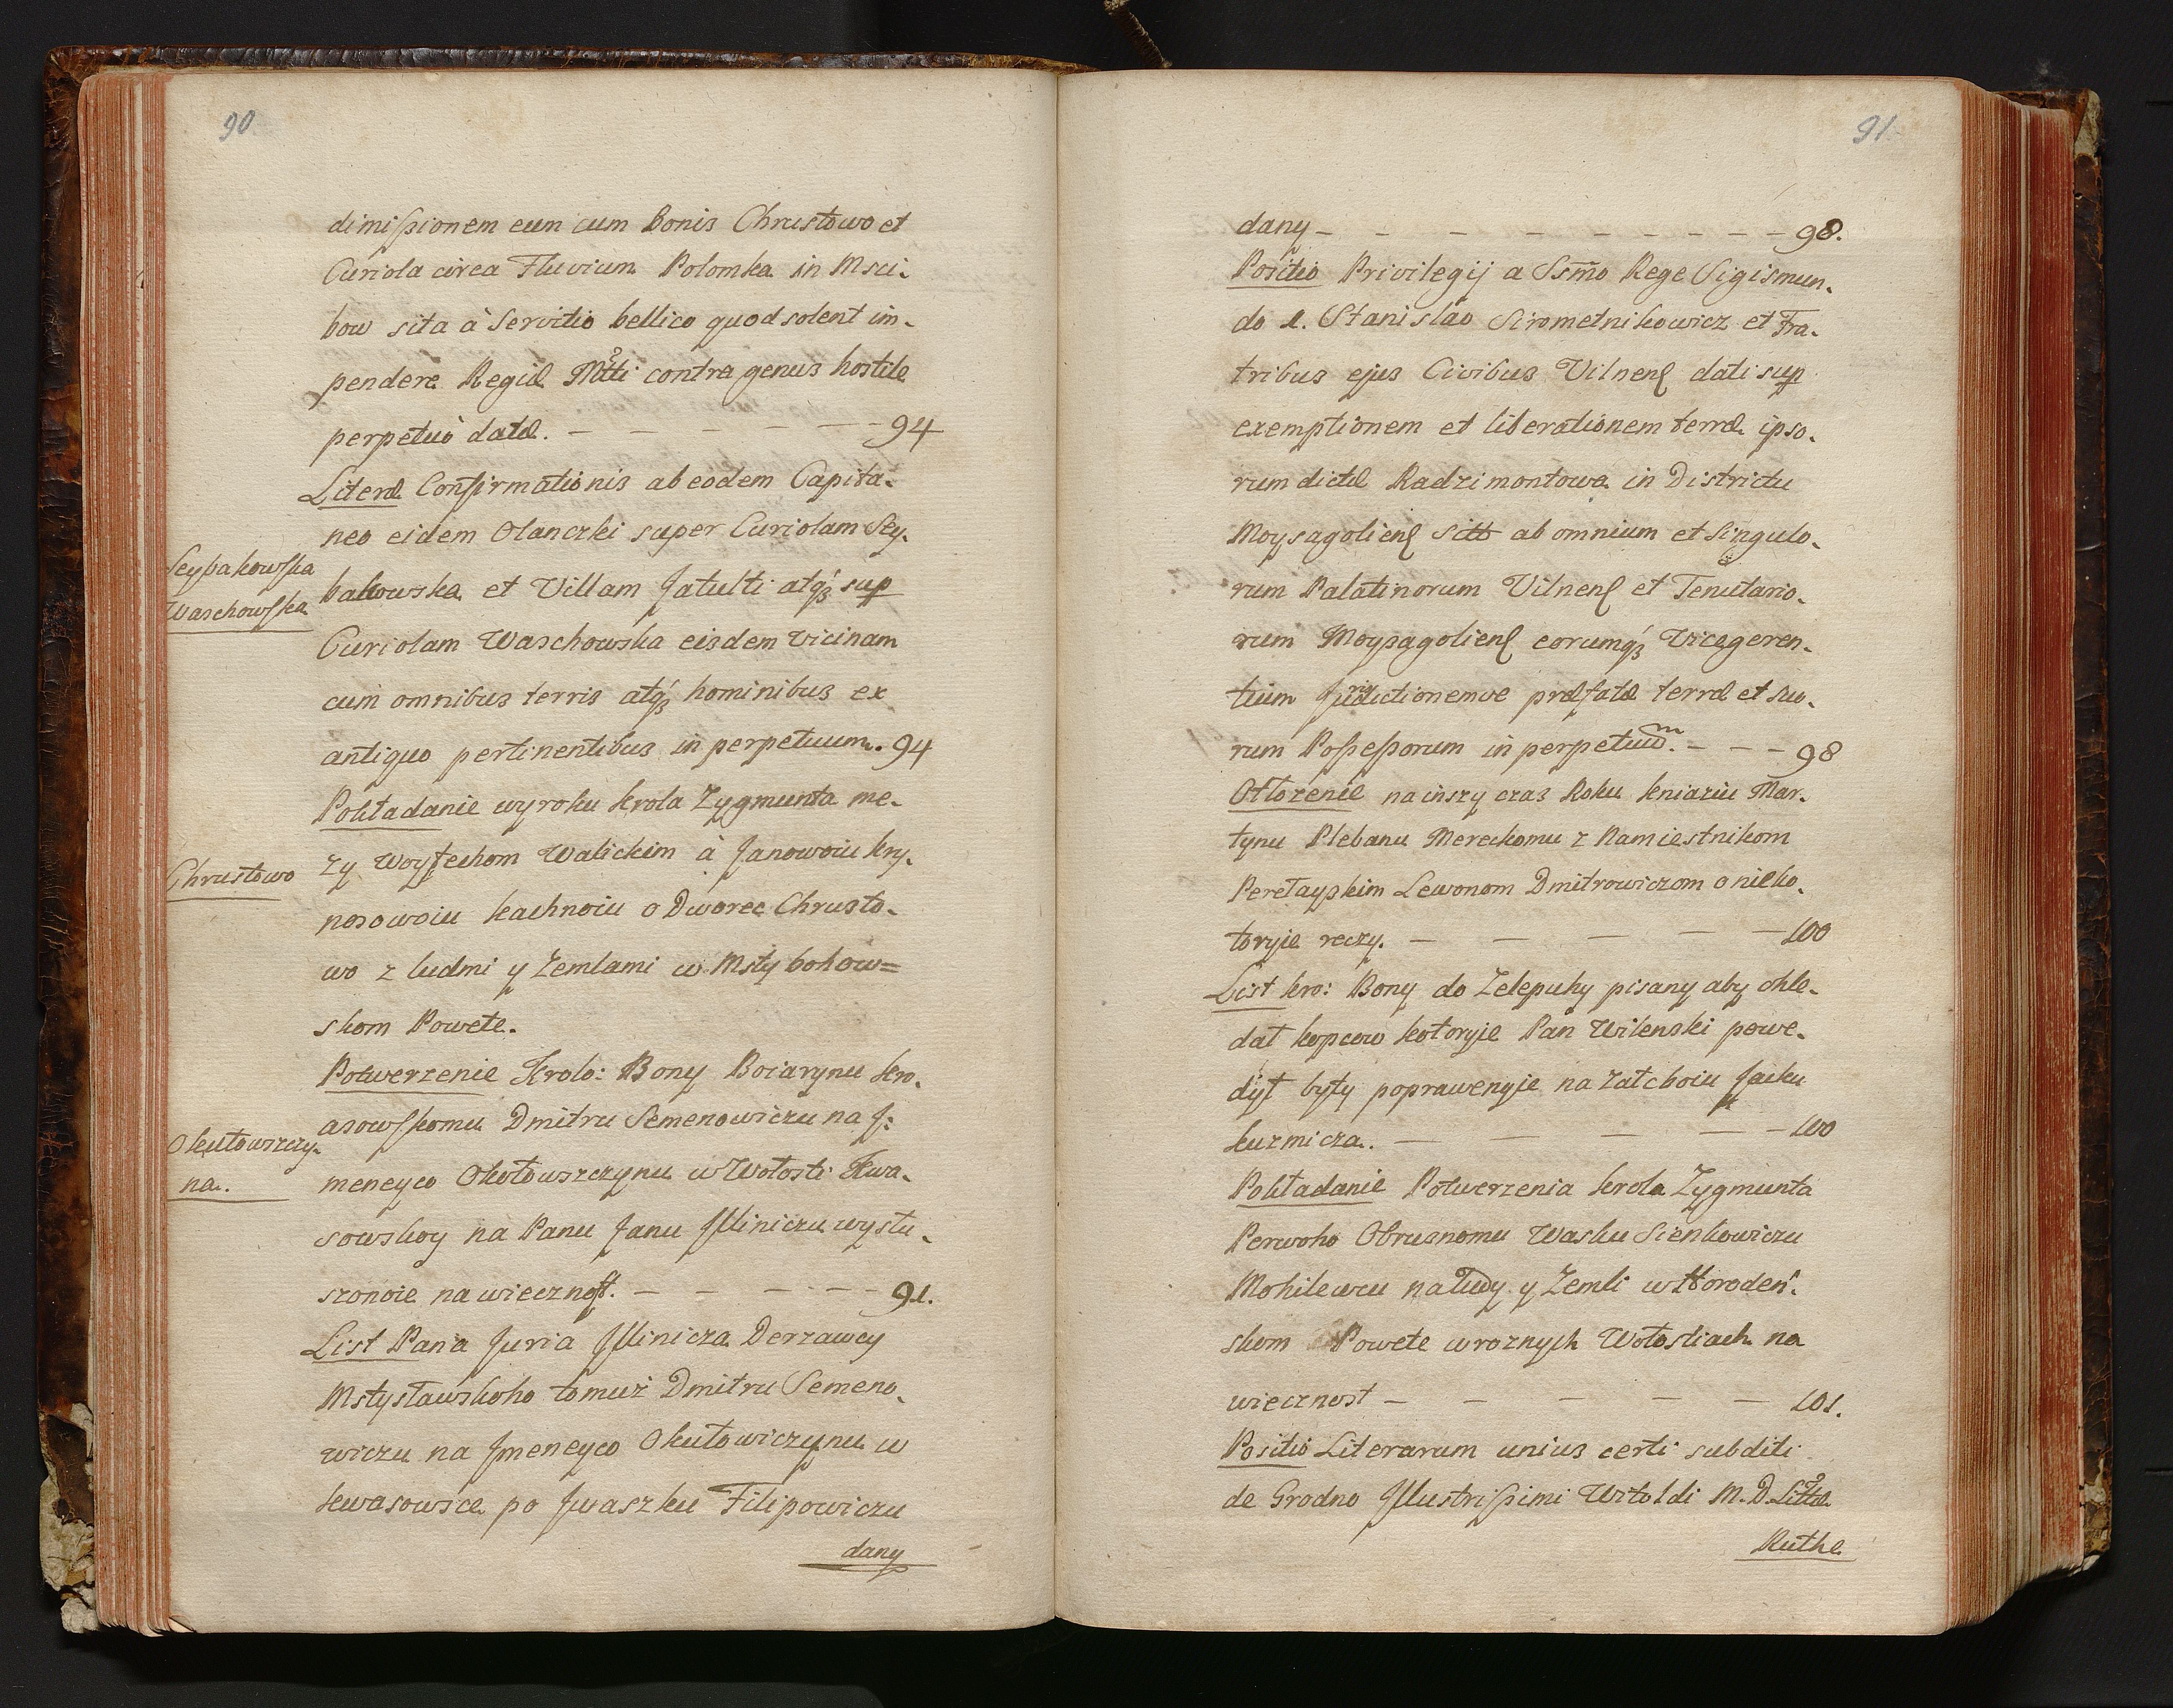 90
dimissionem eum cum bonis Chrustowo et
Curiola circa Fluvium Polomka in Msci-
bow sita à Servitio bellico quod solent im-
pendere Regiæ Mtti contra genus hostile
perpetuò datæ. — — — — — — 94
Literæ Confirmationis ab eodem Capita-
neo eidem Olanczki super Curiolam Sey-
Seybakowska
Waschowska
bakowska et Villam Jatulti atq́ʒ sup
Curiolam Waschowska eisdem vicinam
cum omnibus terris atq́ʒ hominibus ex
antiquo pertinentibus in perpetuum. 94
Pokładanie wyroku krola Zygmunta me-
zy Woyţechom Walickim à Janowoiu kry-
Chrustowo
nosowoiu kachnoiu o Dworec Chrusto-
wo z ludmi y Zemlami w Msty bohow=
skom Powete.
Potwerzenie Krolo: Bony Boiarynu kw-
asowskomu Dmitru Semenowiczu na J:
Okutowszczy-
na.
meneyco Okotowszczynu w Wołosti Kwa-
sowskoy na Panu Janu Jlliniczu wysłu-
szonoie na wiecznost. — — — — — 91.
List Pana Juria Jllinicza Derzawcy
Mstysławskoho tomuż Dmitru Semeno-
wiczu na Jmeneyco Okutowiczynu w
kwasowsce po Jwaszku Filipowiczu
dany
91
dany — — — — — — — — — 98.
Positio Privilegij a Ssm̃o Rege Sigismun-
do 1. Stanislao Sirometnikowicz et Fra-
tribus ejus Civibus Vilnenſ dati sup
exemptionem et liberationem terræ ipso-
rum dictæ Radzimontowa in Districtu
Moysagolienſ sitæ ab omnium et Singulo-
rum Palatinorum Vilnenſ et Tenutario-
rum Moysagolienſ eorumq́ʒ Vicegeren-
tium Jurisdictionemve præfatæ terræ et suo-
rum Possessorum in perpetuum. — — — 98
Otłozenie na inszy czas Roku kniaziu Mar-
tynu Plebanu Mereckomu z Namiestnikom
Perełayskim Lewonom Dmitrowiczom o nieko-
toryie reczy. — — — — — 100
List kro: Bony do Zelepuhy pisany aby ohle-
dał kopcow kotoryie Pan Wilenski powe-
dył były poprawenyie na zatcboiu Jacku
kuzmicza. — — — — — 100
Pokładanie Potwerzenia krola Zygmunta
Perwoho Obrusnomu Wasku Sienkowiczu
Mohilewcu na ludy y Zemli w Horoden-
skom Powete w roznych Wołostiach na
wiecznost — — — — — 101.
Positio Literarum unius certi subditi
de Grodno Jllustrissimi Witoldi M. D. Littæ
Ruthe